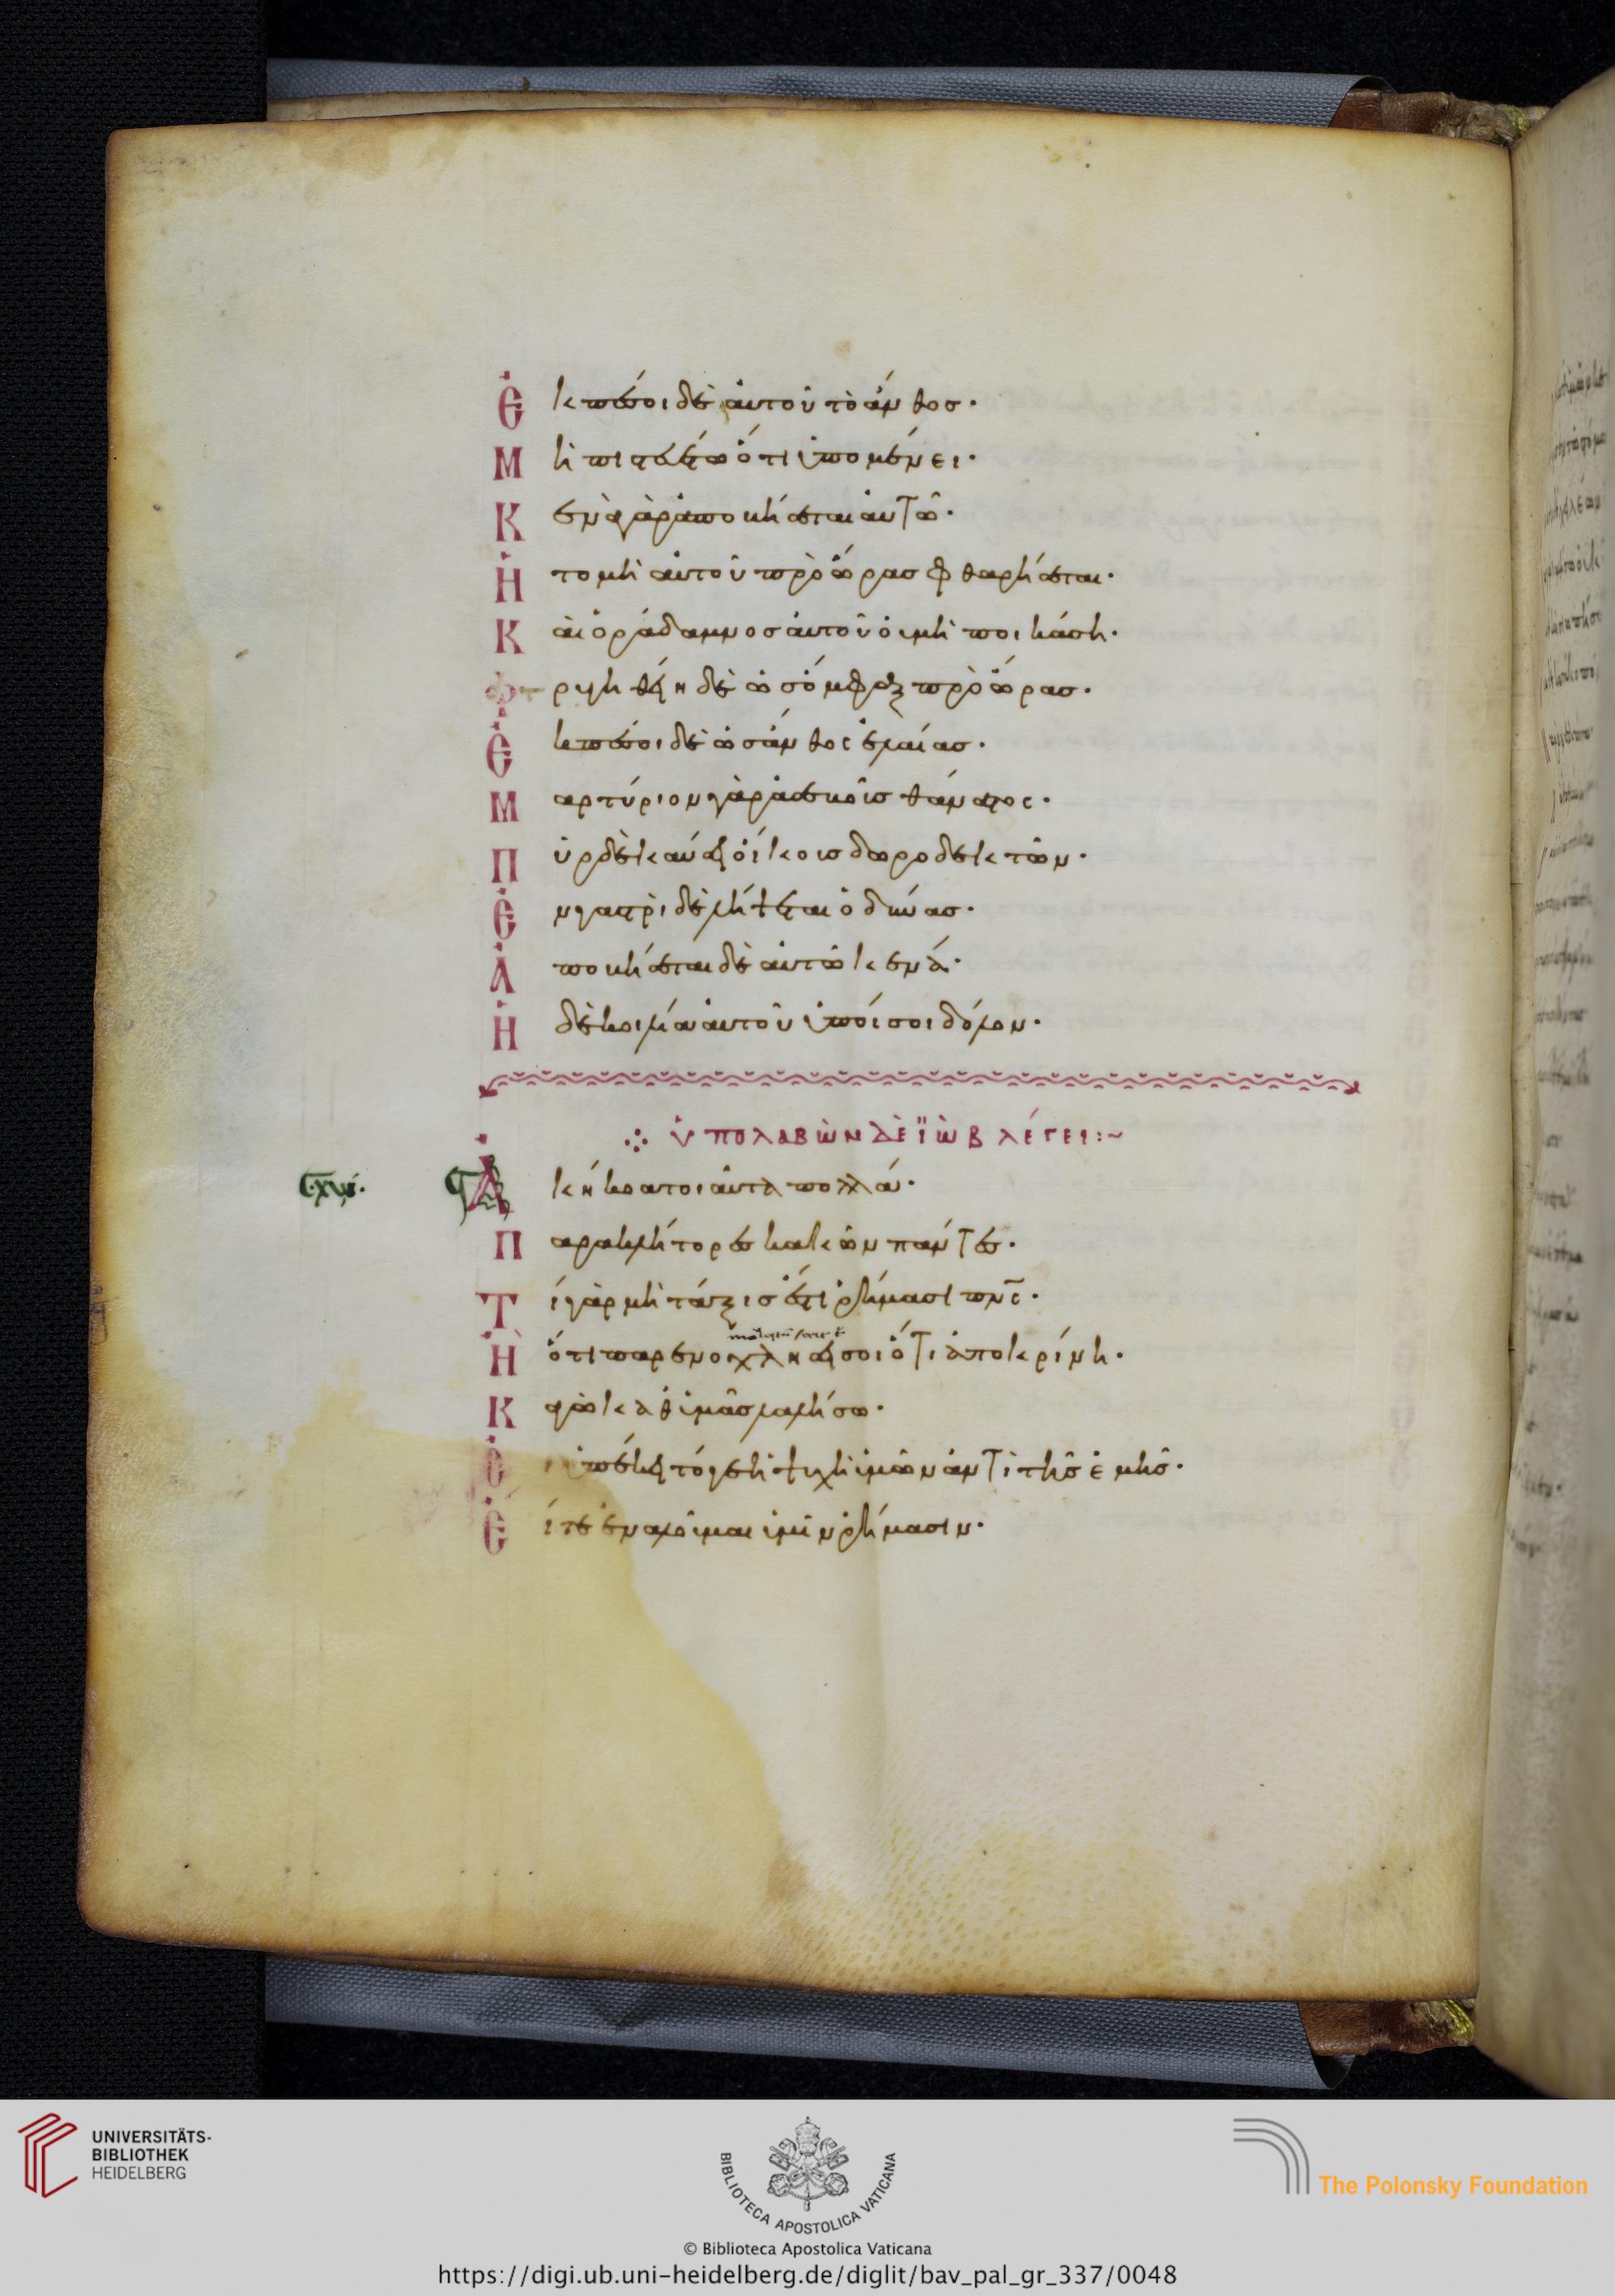 Ἐκπέσοι δὲ αὐτοῦ τὸ ἄνθος·
Μὴ πιστευέτω ὅτι ὑπομένει·
Κενὰ γὰρ ἀποβήσεται αὐτῶ·
Ἡ τομὴ αὐτοῦ πρὸ ὥρας φθαρήσεται·
Καὶ ὁ ράδαμνος αὐτοῦ οὐ μὴ πυκάση·
τρυγηθείη δὲ ὡς ὄμφαξ πρὸ ὥρας·
Ἐκπέσοι δὲ ὡς ἄνθος ἐλαίας·
Μαρτύριον γὰρ ἀσεβοῦς θάνατος·
Πῦρ δὲ καύσει οἴκους δωροδεκτῶν·
Ἐν γαστρὶ δὲ λήψεται ὀδύνας·
Ἀποβήσεται δὲ αὐτῶ κενά·
Ἡ δὲ κοιλία αὐτοῦ ὑποίσει δόλον·
ὑπολαβὼν δὲ ἰὼβ λέγει:~
Cxvi.
Ἀκήκοα τοιαῦτα πολλά·
Παρακλήτορες κακῶν πάντες·
Τί γὰρ μὴ τάξις ἔστι ρήμασι πν̅ς·
Ἢ ὅτι παρενοχλήσει σοι ὅτι ἀποκρίνη·
Κἀγὼ καθ' ὑμᾶς λαλήσω·
Εἰ ὑπέκειτό γε ἡ ψυχὴ ὑμῶν ἀντὶ τῆς ἐμῆς·
Εἶτ' ἐναλοῦμαι ὑμῖν ρήμασιν·
UNIVERSITÄTS-
BIBLIOTHEK
HEIDELBERG
BIBLIOTECA APOSTOLICA VATICANA
The Polonsky Foundation
© Biblioteca Apostolica Vaticana
https://digi.ub.uni-heidelberg.de/diglit/bav_pal_gr_337/0048